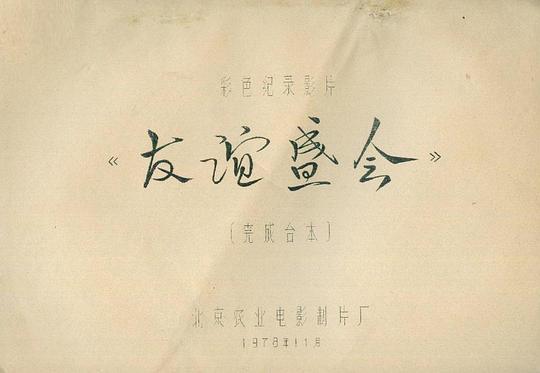 彩色纪录影片
《友谊盛会》
(完成台本)
北京农业电影制片厂
1978年11月